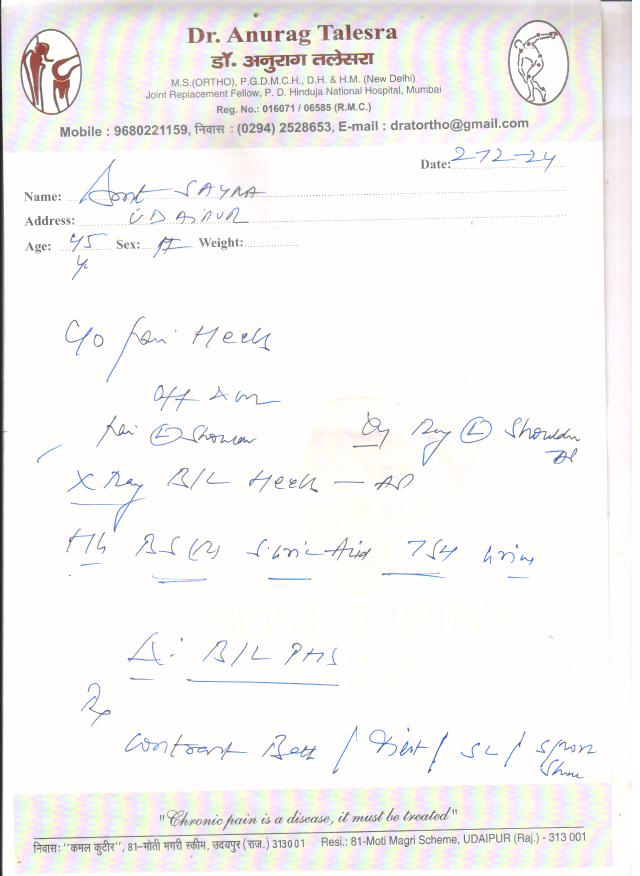 Dr. Anurag Talesra
डॉ. अनुराग तलेसरा
M.S.(ORTHO), P.G.D.M.C.H., D.H. & H.M. (New Delhi)
Joint Replacement Fellow, P. D. Hinduja National Hospital, Mumbai
Reg. No.: 016071 / 06585 (R.M.C.)
Mobile : 9680221159, निवास : (0294) 2528653, E-mail : dratortho@gmail.com
Date: 2-12-24
Name: SAYRA
Address: UDAIPUR
Age: 45 Sex: Weight:
C/o pain Heels
off & on
pain (L) Shoulder
X Ray (L) Shoulder
X Ray B/L Heels — AP
Hb BS(R) S. Uric Acid TSH Urine
Δ: B/L PHS
Rx
Contrast Bath / Diet / SL / Sports
Shoe
BONE & JOINT
CLINIC
"Chronic pain is a disease, it must be treated"
निवासः "कमल कुटीर", 81–मोती मगरी स्कीम, उदयपुर (राज.) 313001 Resi.: 81-Moti Magri Scheme, UDAIPUR (Raj.) - 313 001